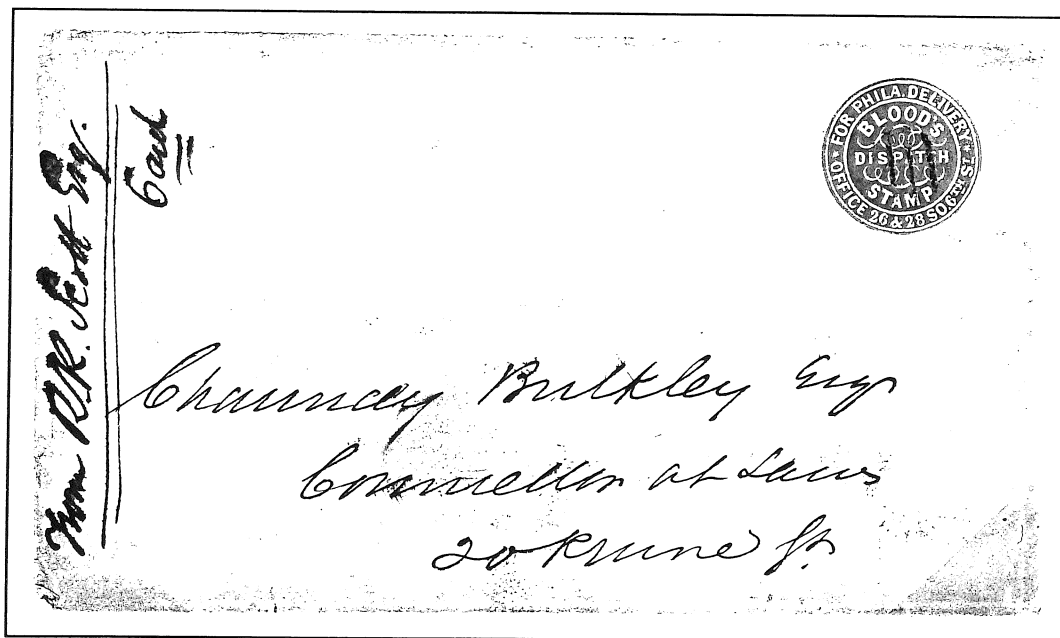 From R.R. Scott Esq.
Card
FOR PHILA. DELIVERY
BLOOD'S
DISPATCH
STAMP
OFFICE 26 & 28 SO. 6TH ST
Chauncey Bulkley Esqr
Counsellor at Laws
20 Prune St.